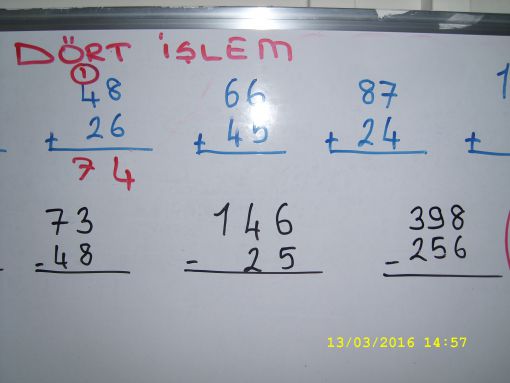 DÖRT İŞLEM
1
48 66 87 1
+ 26 + 45 + 24 +
74
73 146 398
- 48 - 25 - 256
13/03/2016 14:57